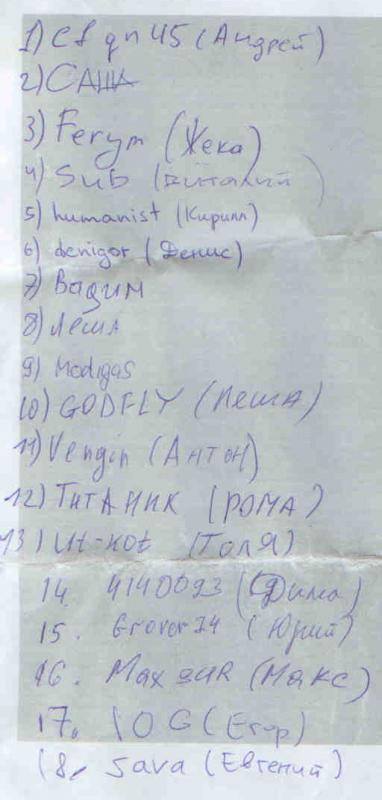 1) (Андрей)
2) САША
3) Ferym (Жека)
4) Sub (Виталий)
5) humanist (Кирилл)
6) denigor (Денис)
7) Вадим
8) Леша
9) Modigas
10) GODFLY (Леша)
11) Vengin (Антон)
12) Титаник (Рома)
13) Ut-kot (Толя)
14. 4140093 (Дима)
15. Grover14 (Юрий)
16. (Макс)
17. (Егор)
18. Sava (Евгений)